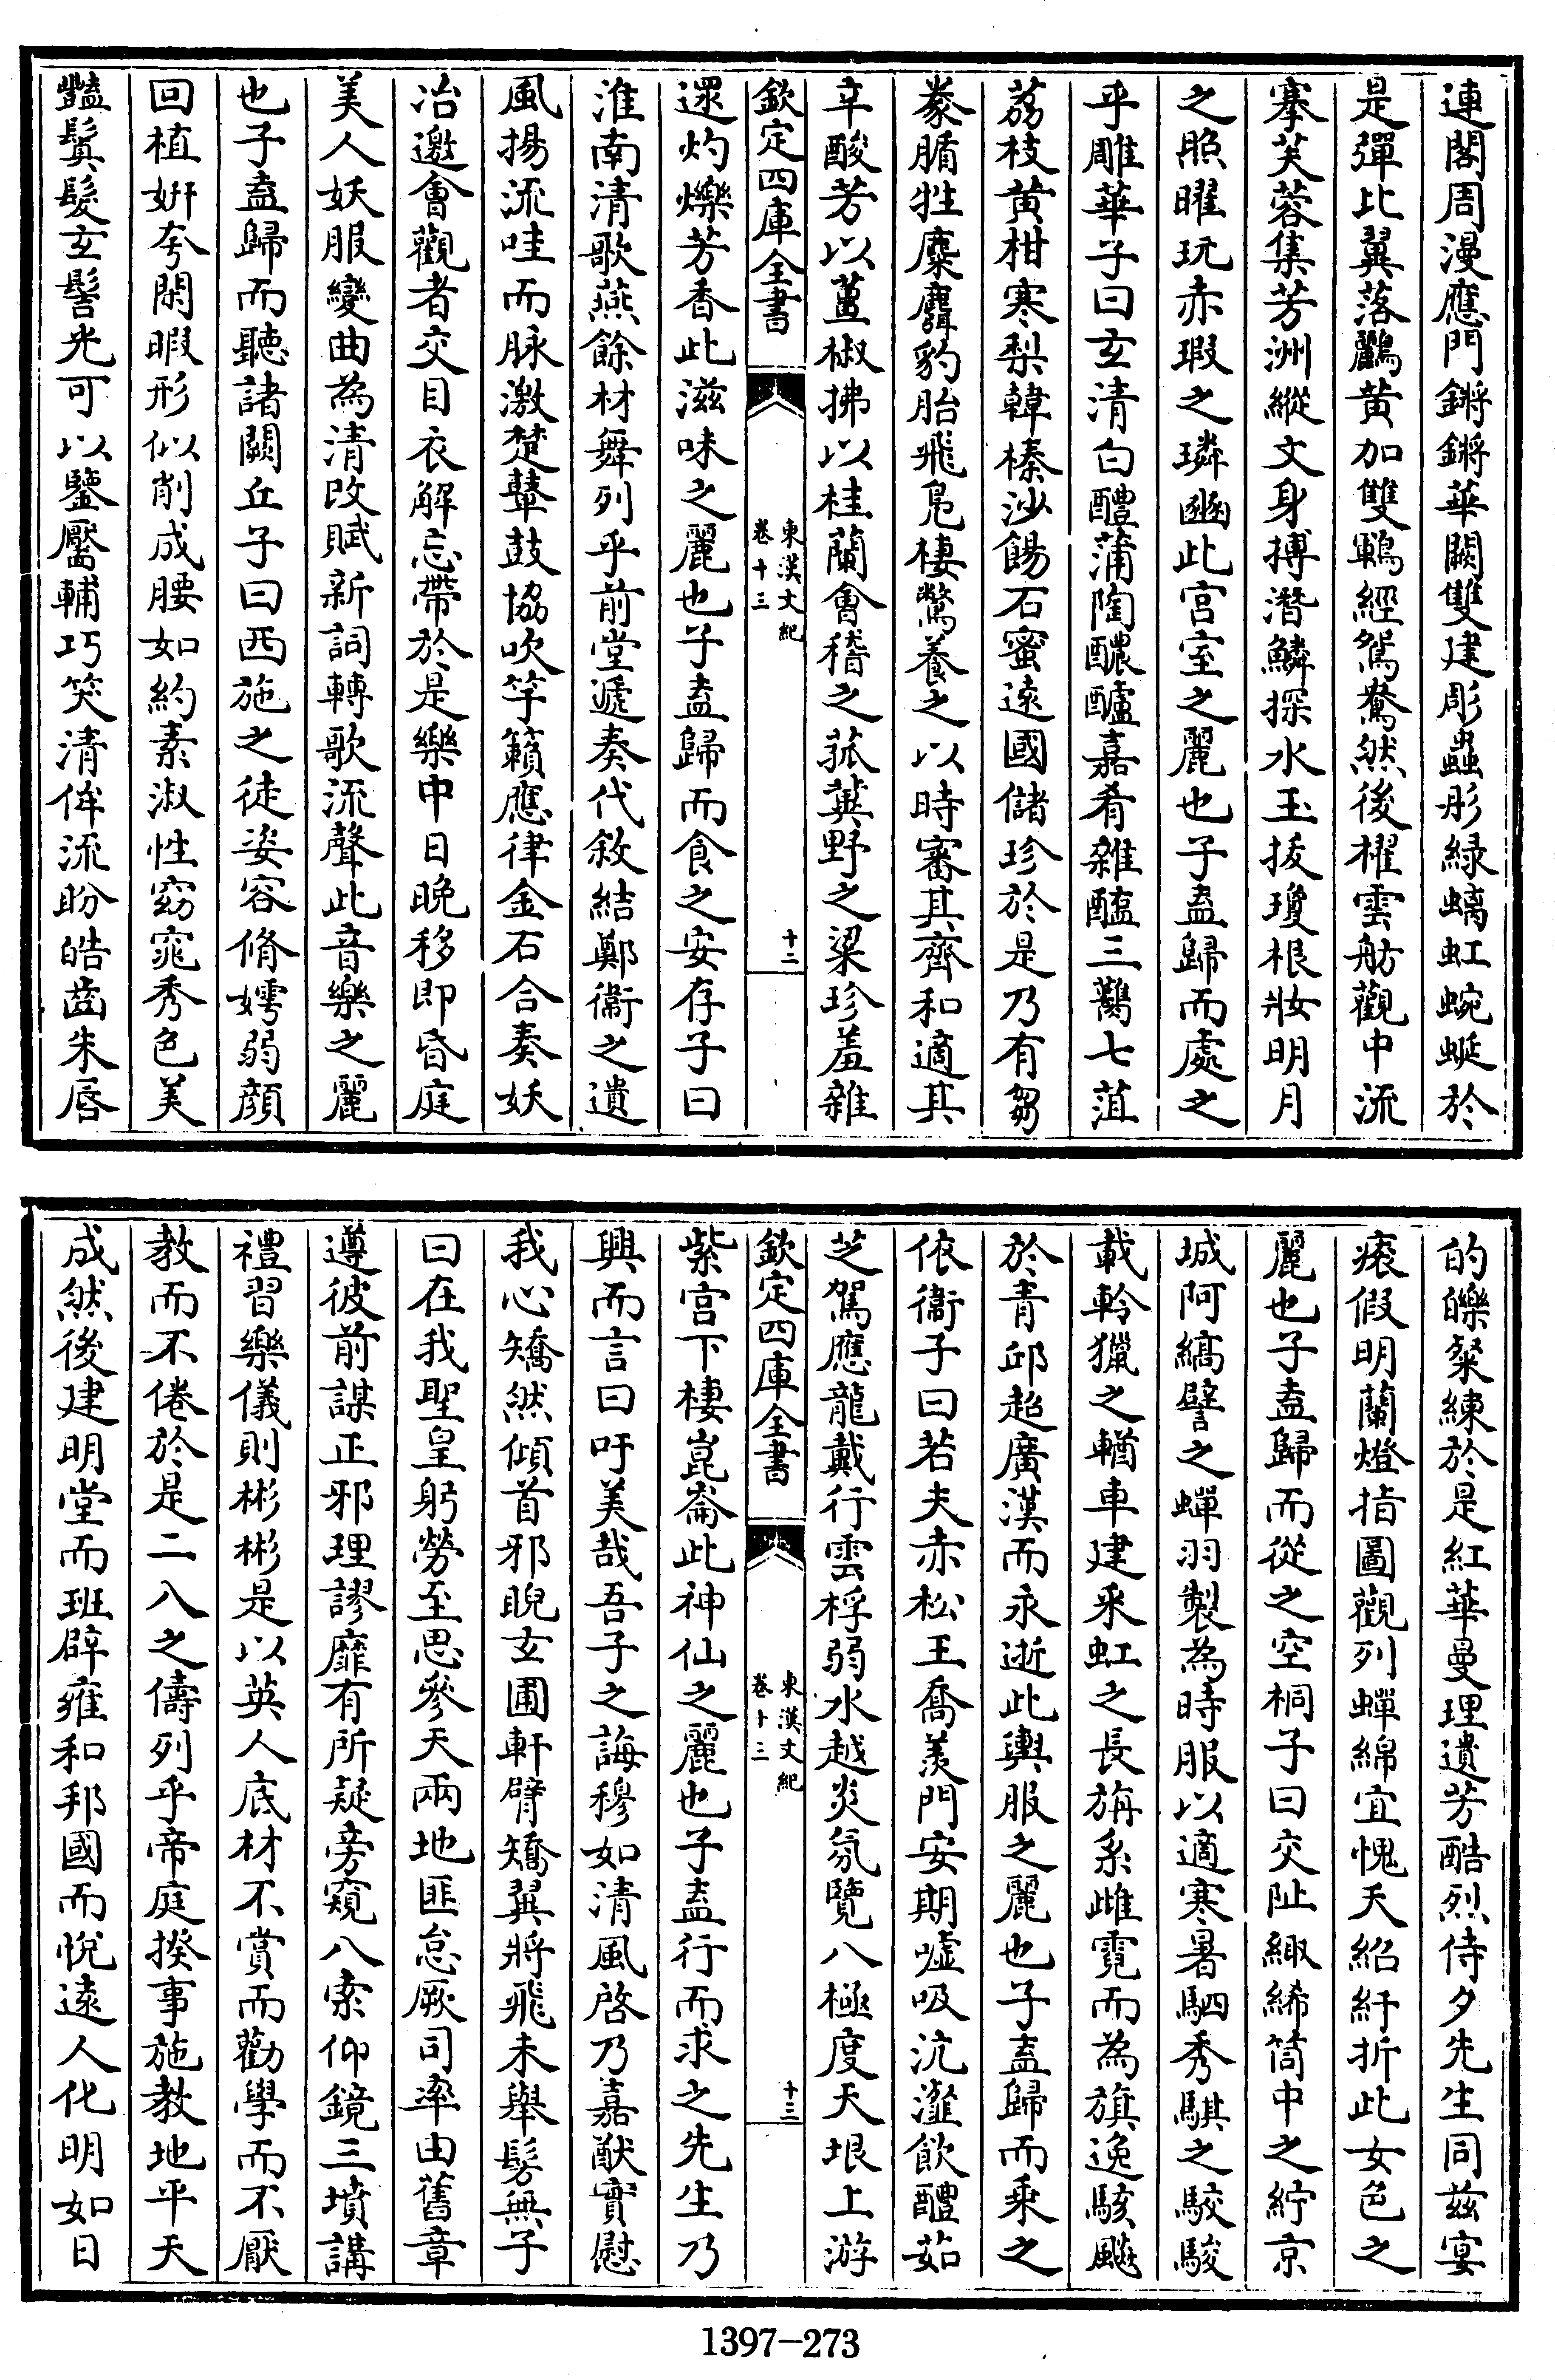 連閣周漫應門鏘鏘華闕雙建彫蟲彤綠螭虹蜿蜒於
是彈比翼落鸝黄加雙鶤經鴛鴦然後櫂雲舫觀中流
搴芙蓉集芳洲縱文身搏潛鱗探水玉拔瓊根妝明月
之照曜玩赤瑕之璘豳此宫室之麗也子盍歸而處之
乎雕華子曰玄清白醴蒲陶醲醹嘉肴雜醢三臡七菹
荔枝黄柑寒梨韓榛沙餳石蜜逺國儲珍於是乃有芻
豢腯牲麋麛豹胎飛鳬棲鷩養之以時審其齊和適其
辛酸芳以薑椒拂以桂蘭會稽之菰蓂野之粱珍羞雜
欽定四庫全書
東漢文紀
卷十三
十二
還灼爍芳香此滋味之麗也子盍歸而食之安存子曰
淮南清歌燕餘材舞列乎前堂遞奏代敘結鄭衞之遺
風揚流哇而脉激楚鼙鼓協吹竽籟應律金石合奏妖
冶邀會觀者交目衣解忘帶於是樂中日晚移即昏庭
美人妖服變曲為清改賦新詞轉歌流聲此音樂之麗
也子盍歸而聽諸闕丘子曰西施之徒姿容脩嫮弱顔
回植妍夸閑暇形似削成腰如約素淑性窈窕秀色美
豔鬒髮玄髻光可以鑒靨輔巧笑清眸流盼皓齒朱唇
的皪粲練於是紅華曼理遺芳酷烈侍夕先生同兹宴
瘱假明蘭燈指圖觀列蟬綿宜愧夭紹紆折此女色之
麗也子盍歸而從之空桐子曰交阯緅絺筒中之紵京
城阿縞譬之蟬羽製為時服以適寒暑駟秀騏之駮駿
載軨獵之輶車建采虹之長旃系雌霓而為旗逸駭飈
於青邱超廣漢而永逝此輿服之麗也子盍歸而乘之
依衞子曰若夫赤松王喬羨門安期噓吸沆瀣飲醴茹
芝駕應龍戴行雲桴弱水越炎氛覽八極度天垠上游
欽定四庫全書
東漢文紀
卷十三
十三
紫宫下棲崑崙此神仙之麗也子盍行而求之先生乃
興而言曰吁美哉吾子之誨穆如清風啓乃嘉猷實慰
我心矯然傾首邪睨玄圃軒臂矯翼將飛未舉髣無子
曰在我聖皇躬勞至思參天兩地匪怠厥司率由舊章
遵彼前謀正邪理謬靡有所疑旁窺八索仰鏡三墳講
禮習樂儀則彬彬是以英人底材不賞而勸學而不厭
教而不倦於是二八之儔列乎帝庭揆事施教地平天
成然後建明堂而班辟雍和邦國而悅遠人化明如日
1397-273